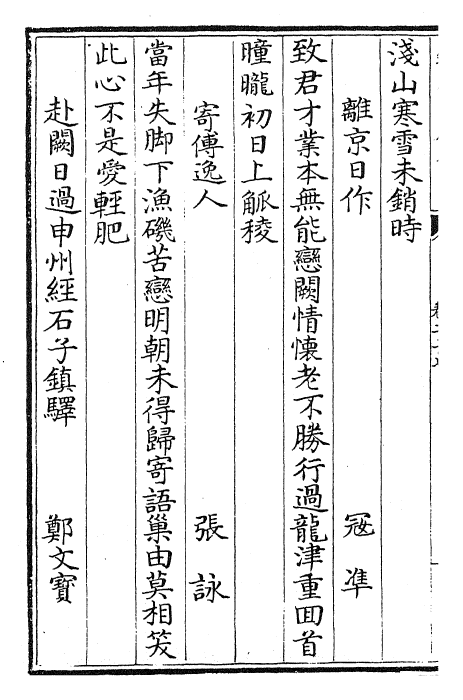 淺山寒雪未銷時
離京日作 冦準
致君才業本無能戀闕情懷老不勝行過龍津重囬首
曈曨初日上觚稜
寄傅逸人 張詠
當年失脚下漁磯苦戀明朝未得歸寄語巢由莫相笑
此心不是愛輕肥
赴闕日過申州經石子鎮驛 鄭文寶